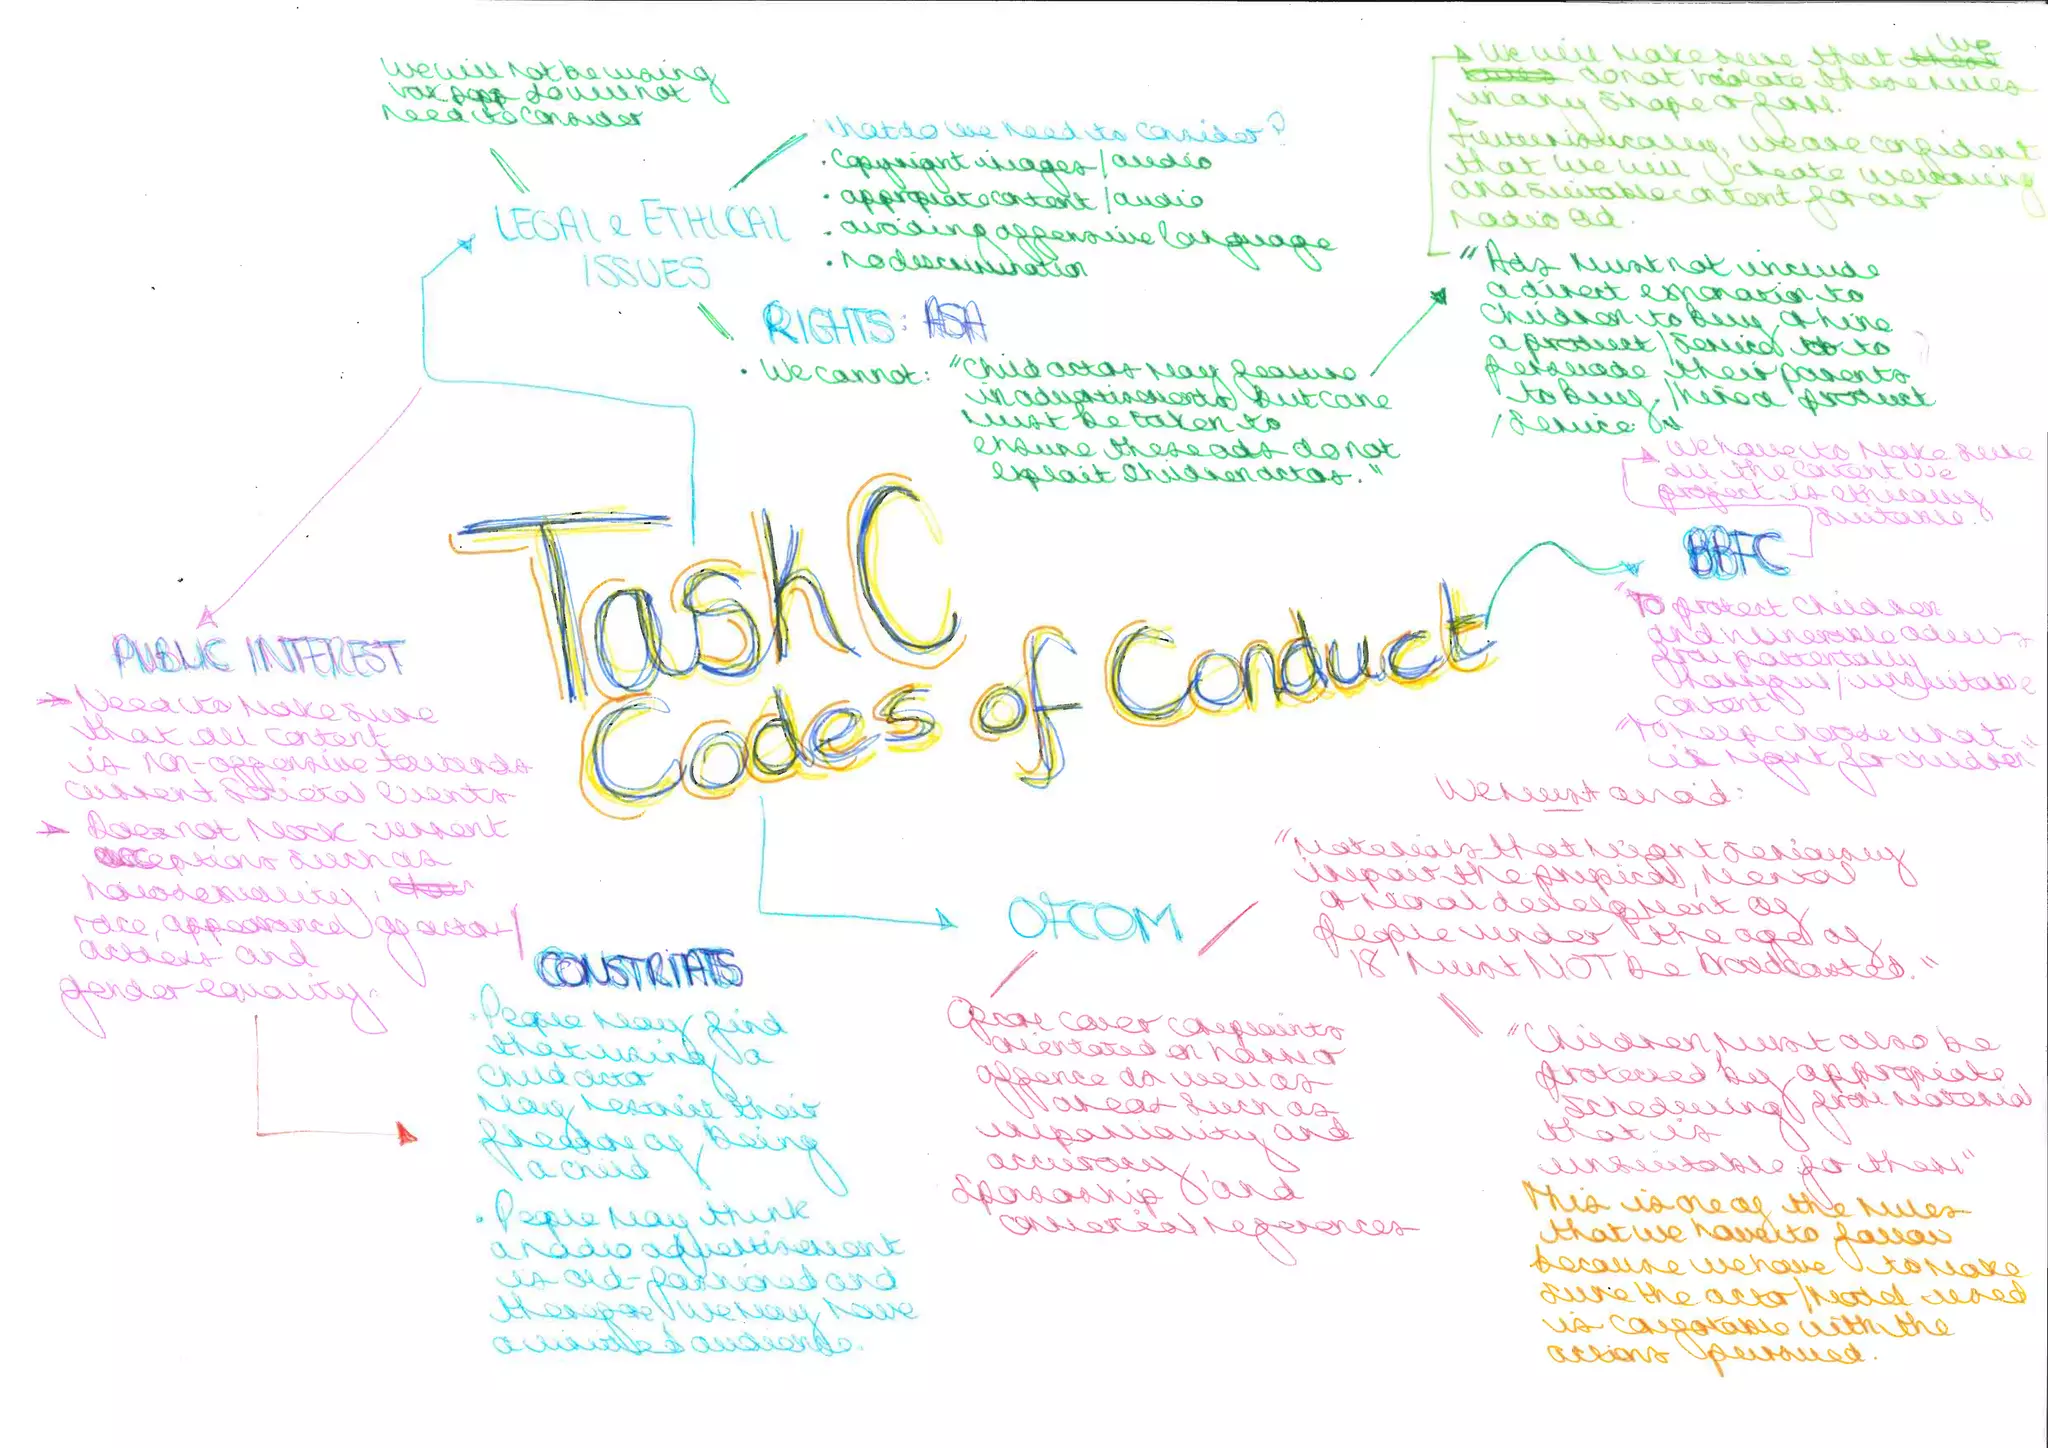 We will not be using
vox pops so will not
need to consider
LEGAL & ETHICAL
ISSUES
What do we need to consider?
• Copyright images/audio
• appropriate content/audio
• avoiding offensive language
• no discrimination
RIGHTS: ASA
• We cannot: "Child actors may feature
in advertisements but care
must be taken to
ensure these ads do not
exploit children actors."
We will make sure that we
do not violate these rules
in any shape or form.
Futuristically, we are confident
that we will create welcoming
and suitable content for our
radio ad.
"Ads must not include
a direct exhoration to
children to buy or hire
a product/service to
persuade their parents
to buy/hire a product
/service."
We have to make sure
all the content we
project is ethically
suitable.
BBFC
"To protect children
and vulnerable adults
from potentially
harmful/unsuitable
content"
"To help choose what
is right for children"
Task C
Codes of Conduct
PUBLIC INTEREST
Need to make sure
that all content
is non-offensive towards
current societal events
Does not mock current
exceptions such as
homosexuality,
race, appearance of actors/
actress and
gender equality.
CONSTRIATS
• People may find
that using a
child actor
may restrict their
freedom of being
a child
• People may think
a radio advertisement
is old-fashioned and
therefore we may have
a limited audience.
OFCOM
Ofcom cover complaints
orientated on harm or
offence as well as
areas such as
impartiality and
accuracy, and
sponsorship and
commerical references
We must avoid:
"Materials that might seriously
impair the physical, mental
or moral development of
people under the age of
18 must NOT be broadcasted."
"Children must also be
protected by appropriate
scheduling from material
that is
unsuitable for them"
This is one of the rules
that we have to follow
because we have to make
sure the actor/model used
is comfortable with the
actions pursued.